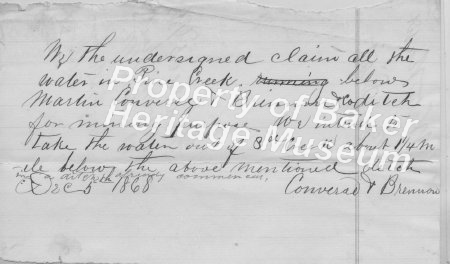 We the undersigned claim all the
water in Pine Creek running below
Martin Converse & ditch
for mining purpose We intend to
take the water out of Creek about 1/4 m
ile below the above mentioned ditch
a ditch already commenced,
Dec 5 1868 Converse & Brennon
Property of Baker
Heritage Museum